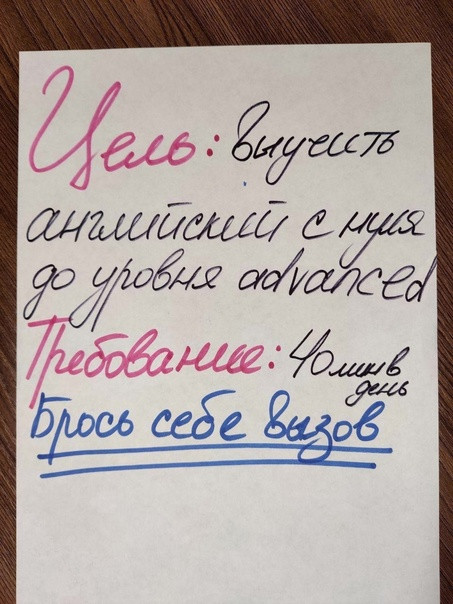 Цель: выучить
английский с нуля
до уровня advanced
Требование: 40 мин в
день
Брось себе вызов